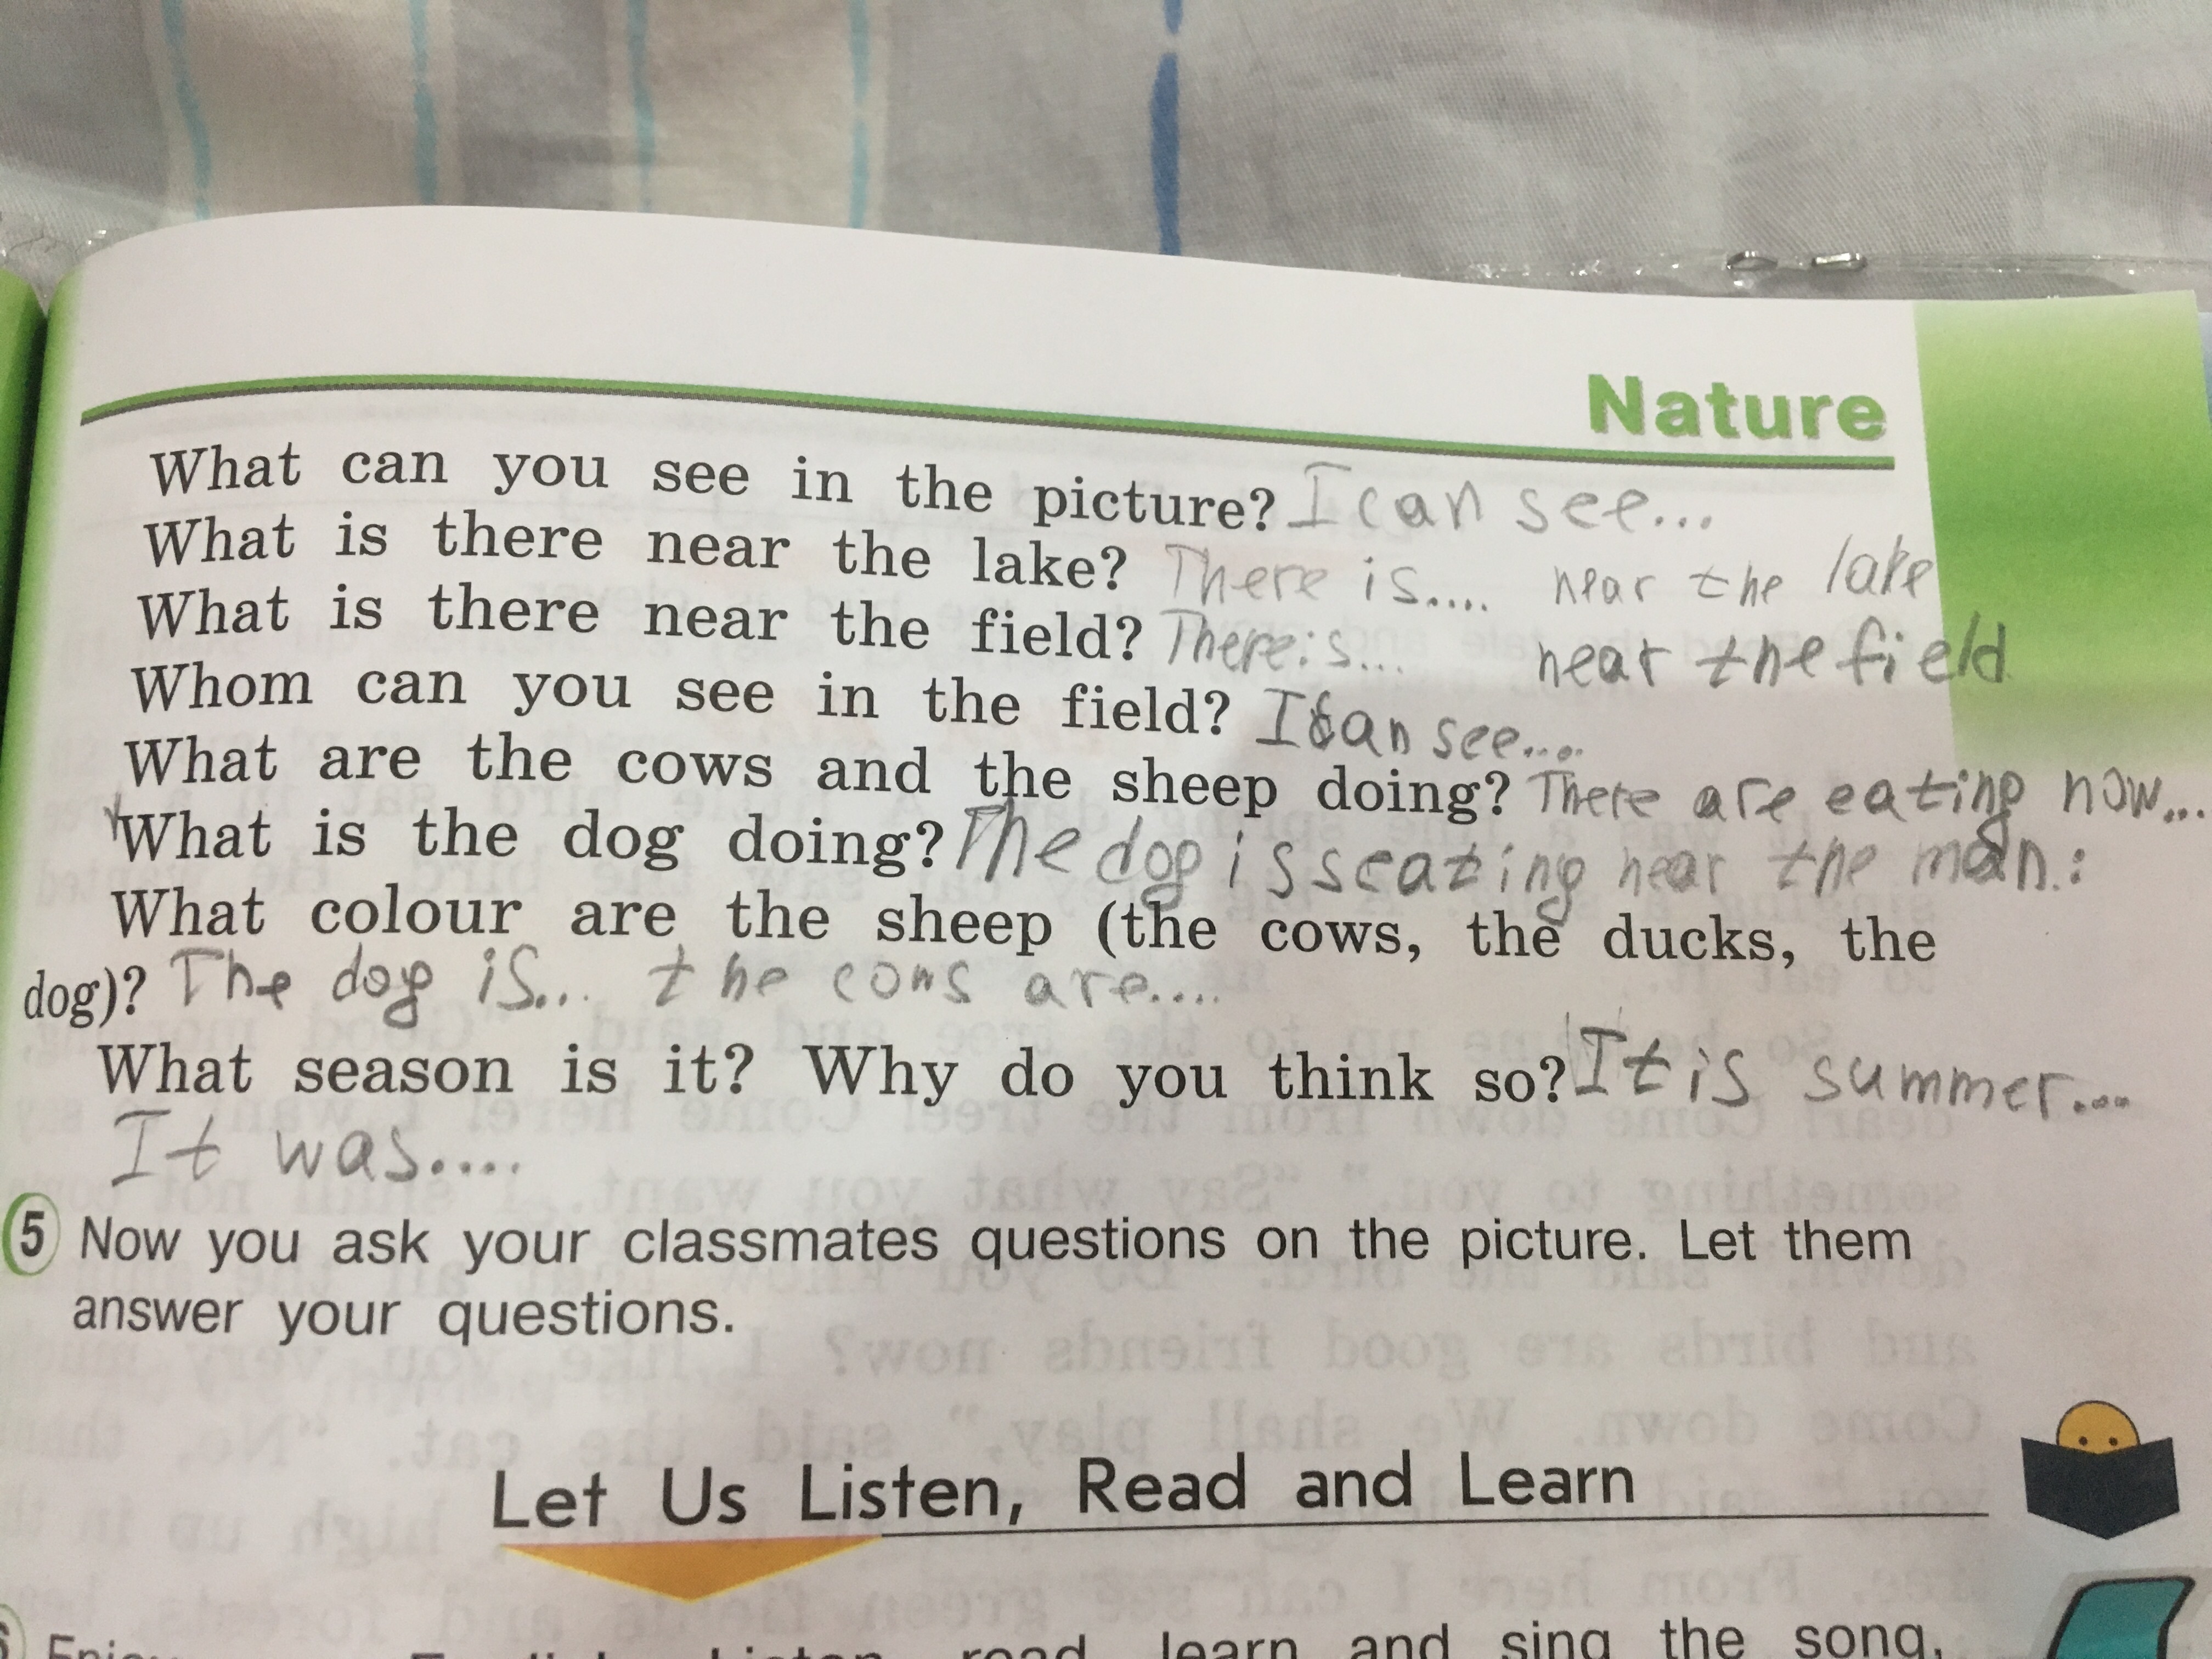 Nature
What can you see in the picture? I can see...
What is there near the lake? There is.... near the lake
What is there near the field? There is... near the field
Whom can you see in the field? I can see....
What are the cows and the sheep doing? There are eating now...
What is the dog doing? The dog is seating near the man.:
What colour are the sheep (the cows, the ducks, the
dog)? The dog is... the cows are....
What season is it? Why do you think so? It is summer...
It was....
5 Now you ask your classmates questions on the picture. Let them
answer your questions.
Let Us Listen, Read and Learn
read, learn and sing the song.